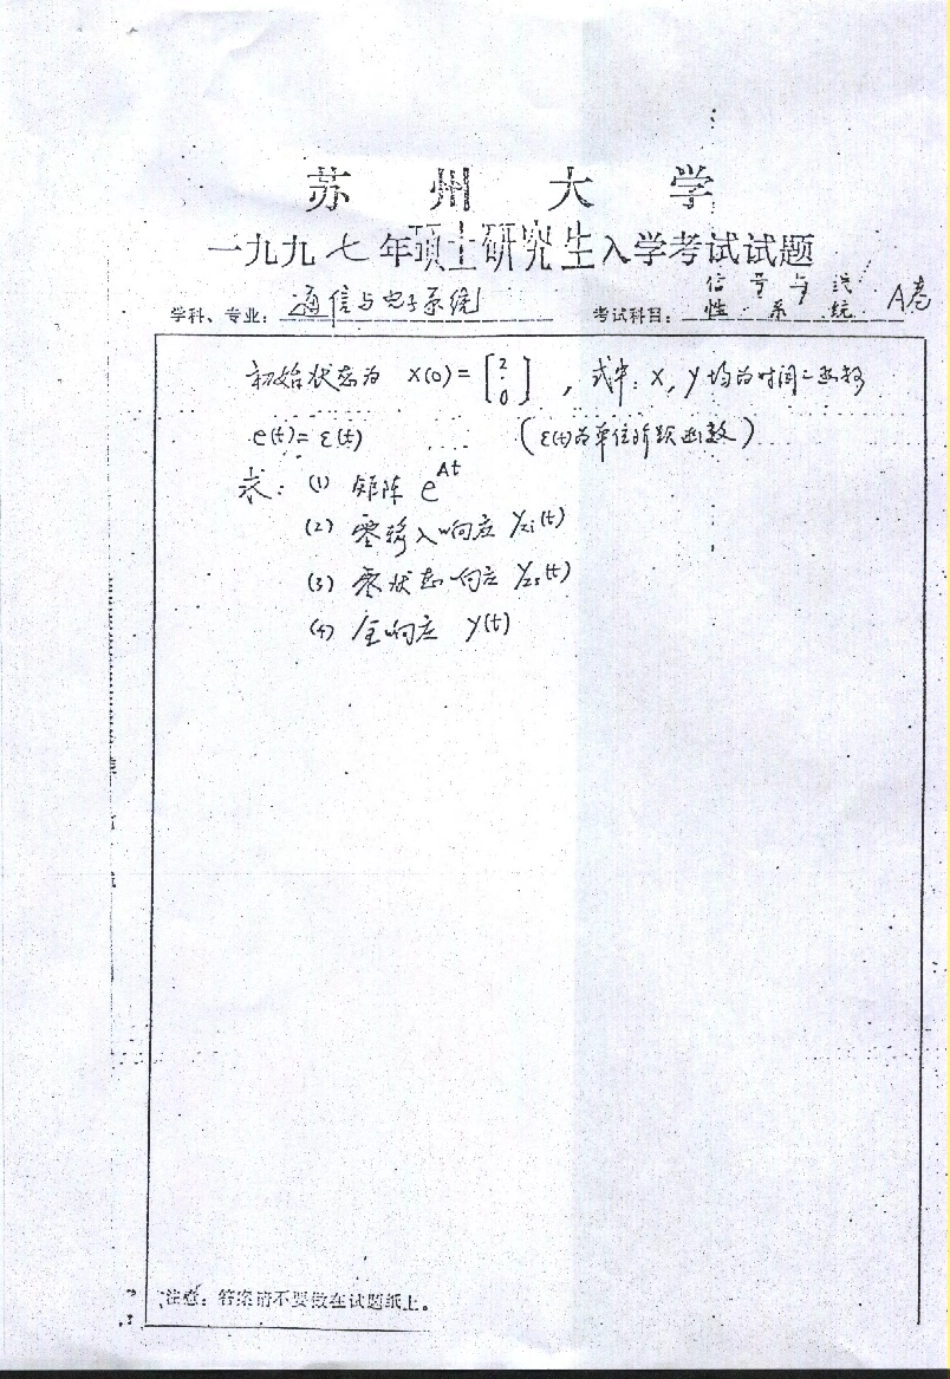 苏州大学
一九九七年硕士研究生入学考试试题
学科、专业：通信与电子系统 考试科目：信号与线性系统 A卷
初始状态为 x(0)=[2 0]，式中：x，y均为时间t函数
e(t)=ε(t) (ε(t)为单位阶跃函数)
求：(1) 矩阵 e^{At}
(2) 零输入响应 y_{zi}(t)
(3) 零状态响应 y_{zs}(t)
(4) 全响应 y(t)
注意：答案请不要做在试题纸上。